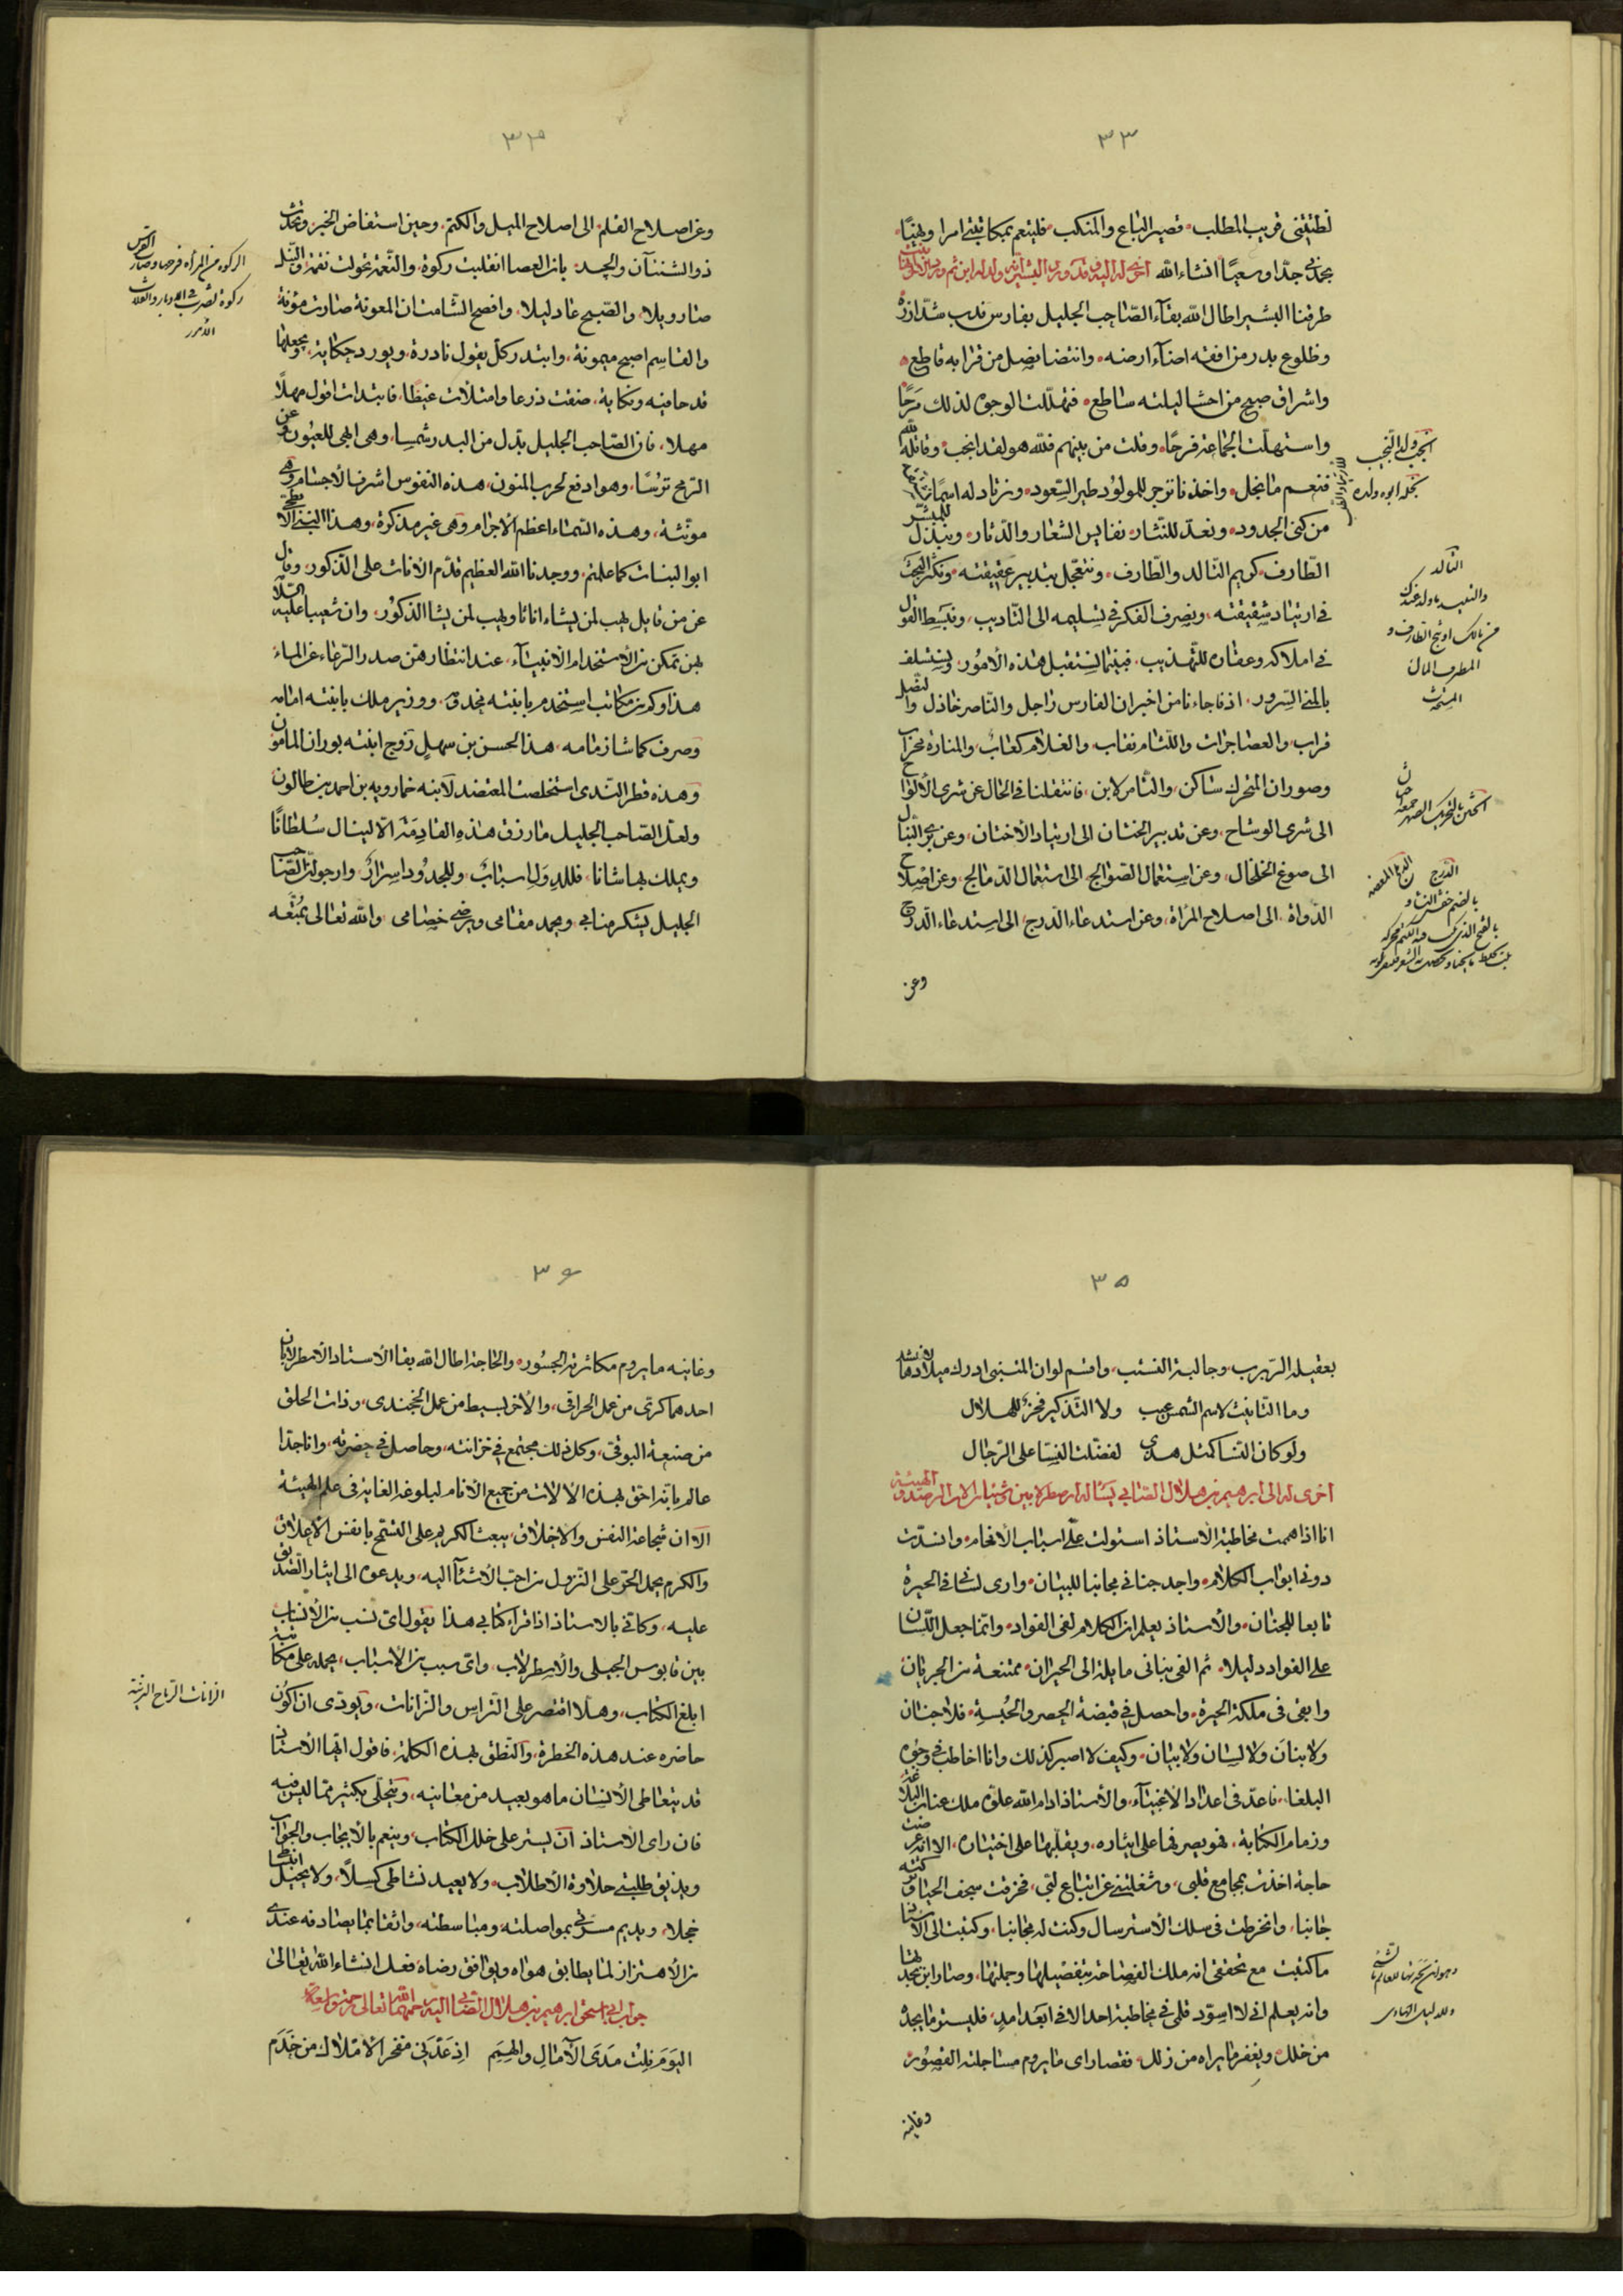 ٣٣
لطيتني قريب المطلب قصير الباع والمنكب فلينعم بمكاتبتي امرا ونهيًا
يجدني جدا وسعيًا انشاء الله اخرى له اليه في قدوم البشير
طرفنا البشير اطال الله بقاء الصاحب الجليل بفارس قد شد ازره
وطلوع بدر من افقه اضاء ارضه وانتضا نصل من قرابه قاطع
واشراق صبح من احشا ليلته ساطع فتهللت الوجوه لذلك مرحًا
واستهلت الجماعة فرحًا وقلت من بينهم فلله هو لقد انجب وقاتله الله
فنعم ما نجل واخذنا نزجر للمولود طير السعود ونرتاد له اسمًا
من كنى الجدود ونعد للنثار نفايس الشعار والدثار ونبذل للمبشر
الطارف كريم التالد والطارف ونتعجل بتدبير عقيقته ونكثر البحث
في ارتياد شقيقته ويصرف الفكر في تسليمه الى التاديب ونبسط القول
في املاكه وعقاره للتهذيب فبينما نستقبل هذه الامور ونستسلف
بالمنى السرور اذ فاجاءنا من اخبر ان الفارس راجل والناصر خاذل والنصل
قراب والعصا جراب واللثام نقاب والغلام كعاب والمنارة محراب
وصور ان المتحرك ساكن والثامر لابن فانتقلنا في الحال عن شرى الالواح
الى شرى الوشاح وعن تدبير الختان الى ارتياد الاختان وعن برى النبال
الى صوغ الخلخال وعن استعمال الصوالج الى استعمال الدمالج وعن اصلاح
الدواة الى اصلاح المرآة وعن استدعاء الدرج الى استدعاء الدرج
وعن
انجب ولد النجيب
نجله ابوه ولده
التالد
المطرف المال
المستحدث
الختن بالتحريك الصهر جمعه اختان
٣٤
وعن اصلاح القلم الى اصلاح الميل والكتم وحين استفاض الخبر وتحدث
ذو الشنئان والحسد بان العصا انقلبت ركوة والنعمة تحولت نقمة والنيل
صار ويلا والصبح عاد ليلا وافصح الشامت ان المعونة صارت مؤنة
والقاسم اصبح ميمونة وابتدر كل يقول نادرة ويورد حكاية ويجعلها
قدحا فيه ونكاية ضقت ذرعا وامتلات غيظًا فابتدات اقول مهلًا
مهلا فان الصاحب الجليل بدل من البدر شمسا وهي ابهى للعيون وعن
الرمح ترسًا وهو ادفع لحرب المنون هذه النفوس اشرف الاجسام وهي
مونثة وهذه السماء اعظم الاجرام وهي غير مذكرة وهذا النبي الابطحي
ابو البنات كما علمتم ووجدنا الله العظيم قدم الاناث على الذكور وقال
عز من قايل يهب لمن يشاء اناثا ويهب لمن يشا الذكور وان شعيبا عليه السلام
بهن تمكن من الاستخدام الانبياء عند انتظارهن صدر الرعاء عن الماء
هذا وكم من مكاتب استخدم بابنته مخدوم ووزير ملك بابنته امامه
وصرف كما شا زمامه هذا الحسن بن سهل زوج ابنته بوران المامون
وهذه قطر الندى استخلصت المعتضد لابنه خمارويه بن احمد بن طالون
ولعل الصاحب الجليل ما رزق هذه القادمة الا لينال سُلطانًا
ويملك بها شانا فللدول اسباب وللجدود اسرار وارجو ان الصاحب
الجليل يشكر منابي ويحمد مقامي ويرضى خصامي والله تعالى يمتعه
٣٥
بعقيلة الربرب وجالبة النسب واقسم لو ان المتنبي ادرك ميلادها لانشد
وما التانيث لاسم الشمس عيب ولا التذكير فخر للهلال
ولو كان النسا كمثل هذى لفضلت النسا على الرجال
اخرى له الى ابرهيم بن هلال الصابي يساله اصطرلابين
انا اذا هممت مخاطبة الاستاذ استولت على اسباب الافحام وانسدت
دوني ابواب الكلام واجد جناني مجانبا للبيان وارى لساني في الحيرة
تابعا للجنان والاستاذ يعلم ان الكلام لفي الفواد وانما جعل اللسان
على الفواد دليلا ثم الفي بناني مايلة الى الحيران ممتنعة من الجريان
وابقى في ملكة الحيرة واحصل في قبضة الحصر والحبسة فلا جنان
ولا بنان ولا لسان ولا بيان وكيف لا اصير كذلك وانا اخاطب في وجوه
البلغا فاعد في اعداد الاغبياء والاستاذ ادام الله علوه ملك عنان البلاغة
وزمام الكتابة فهو يصرفها على ايثاره ويقلبها على اختياره الا انه عرضت
حاجة اخذت بمجامع قلبي وشغلتني عن اتباع لبي فخرقت سجف الحيا وتركته
جانبا وانخرطت في سلك الاسترسال وكنت له مجانبا وكتبت الى الاستاذ
ما كتبت مع تحققي انه ملك الفصاحة بتفصيلها وجملتها وصار ابن بجدتها
وانه يعلم اني لا اسود قلمي في مخاطبة احد الا في ابعد امد فليستر ما يجده
من خلل ويغفر ما يراه من زلل فقصارى ما يروم مساجلته القصور
وغايته
٣٦
وغايته ما يروم مكاثرته الجسور والحاجة اطال الله بقا الاستاد الاسطرلابان
احدهما كرى من عمل الحراقي والاخر بسيط من عمل الخجندي وذات الحلق
من صنعة البوقي وكل ذلك مجتمع في خزانته وحاصل في حضرته وانا جدا
عالم بانه احق بهذه الالات من جميع الانام لبلوغه الغاية في علم الهيئة
الا ان شجاعة النفس والاخلاق يبعث الكريم على التسمح بانفس الاعلاق
والكرم يحمل الحر على النزول من احب الاشياء اليه ويدعوه الى ايثار الصديق
عليه وكاني بالاستاذ اذا قراء كتابي هذا يقول اى نسب من الانساب
بين قابوس الجبلي والاسطرلاب واى سبب من الاسباب يحمله على مكاتبته
ابلغ الكتاب وهلا اقتصر على التراس والزانات ويودى ان اكون
حاضره عند هذه الخطرة والنطق بهذه الكلمة فاقول ايها الاستاذ
قد يتعاطى الانسان ما هو بعيد من معانيه ويتحلى بكثير مما ليس فيه
فان راى الاستاذ ان يستر على خلل الكتاب وينعم بالايجاب والجواب
ويذيق طلبتي حلاوة الاطلاب ولا يعيد نشاطى كسلًا ولا يحيل انبساطي
خجلا ويديم مسرتي بمواصلته ومباسطته واثقا بما يصادفه عندى
من الاهتزاز لما يطابق هواه ويوافق رضاه فعل انشاء الله تعالى
جواب ابي اسحق ابرهيم بن هلال الصابي اليه
اليوم نلت مدى الآمال والهمم اذ عدني مفخر الاملاك من خدم
الزانات الرماح البرنية